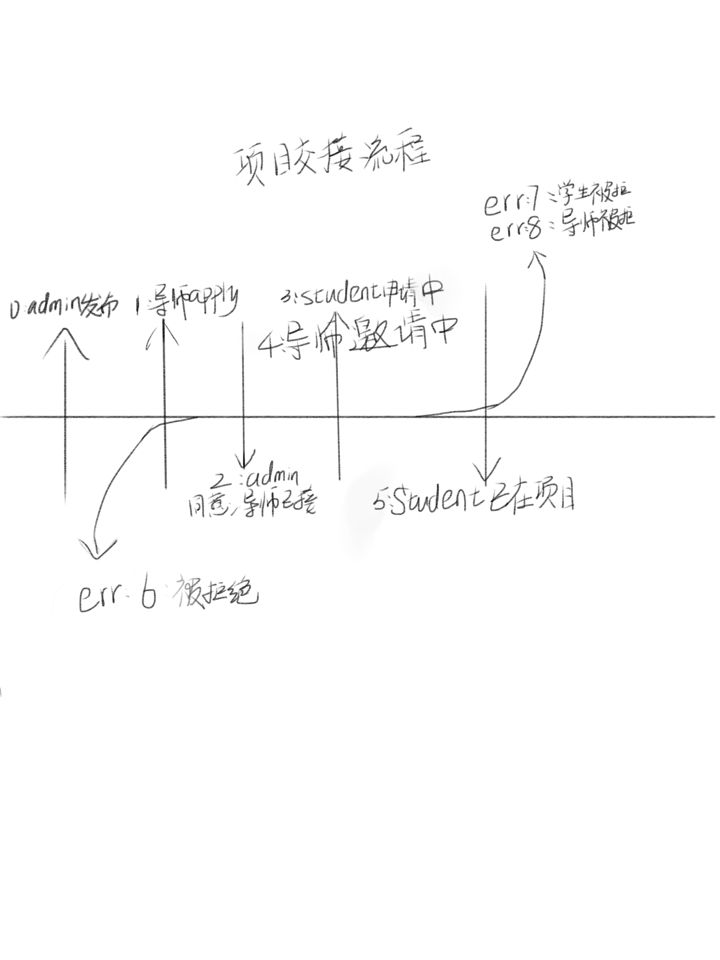 项目交接流程
err:7:学生被拒
err:8:导师被拒
0:admin发布
1:导师apply
3:student申请中
4:导师邀请中
2:admin
同意,导师已接
5:Student已在项目
err:6:被拒绝